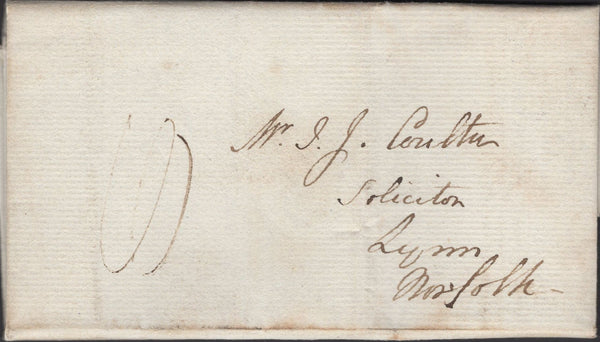 Mr. J. J. Coulton
Solicitor
Lynn
Norfolk